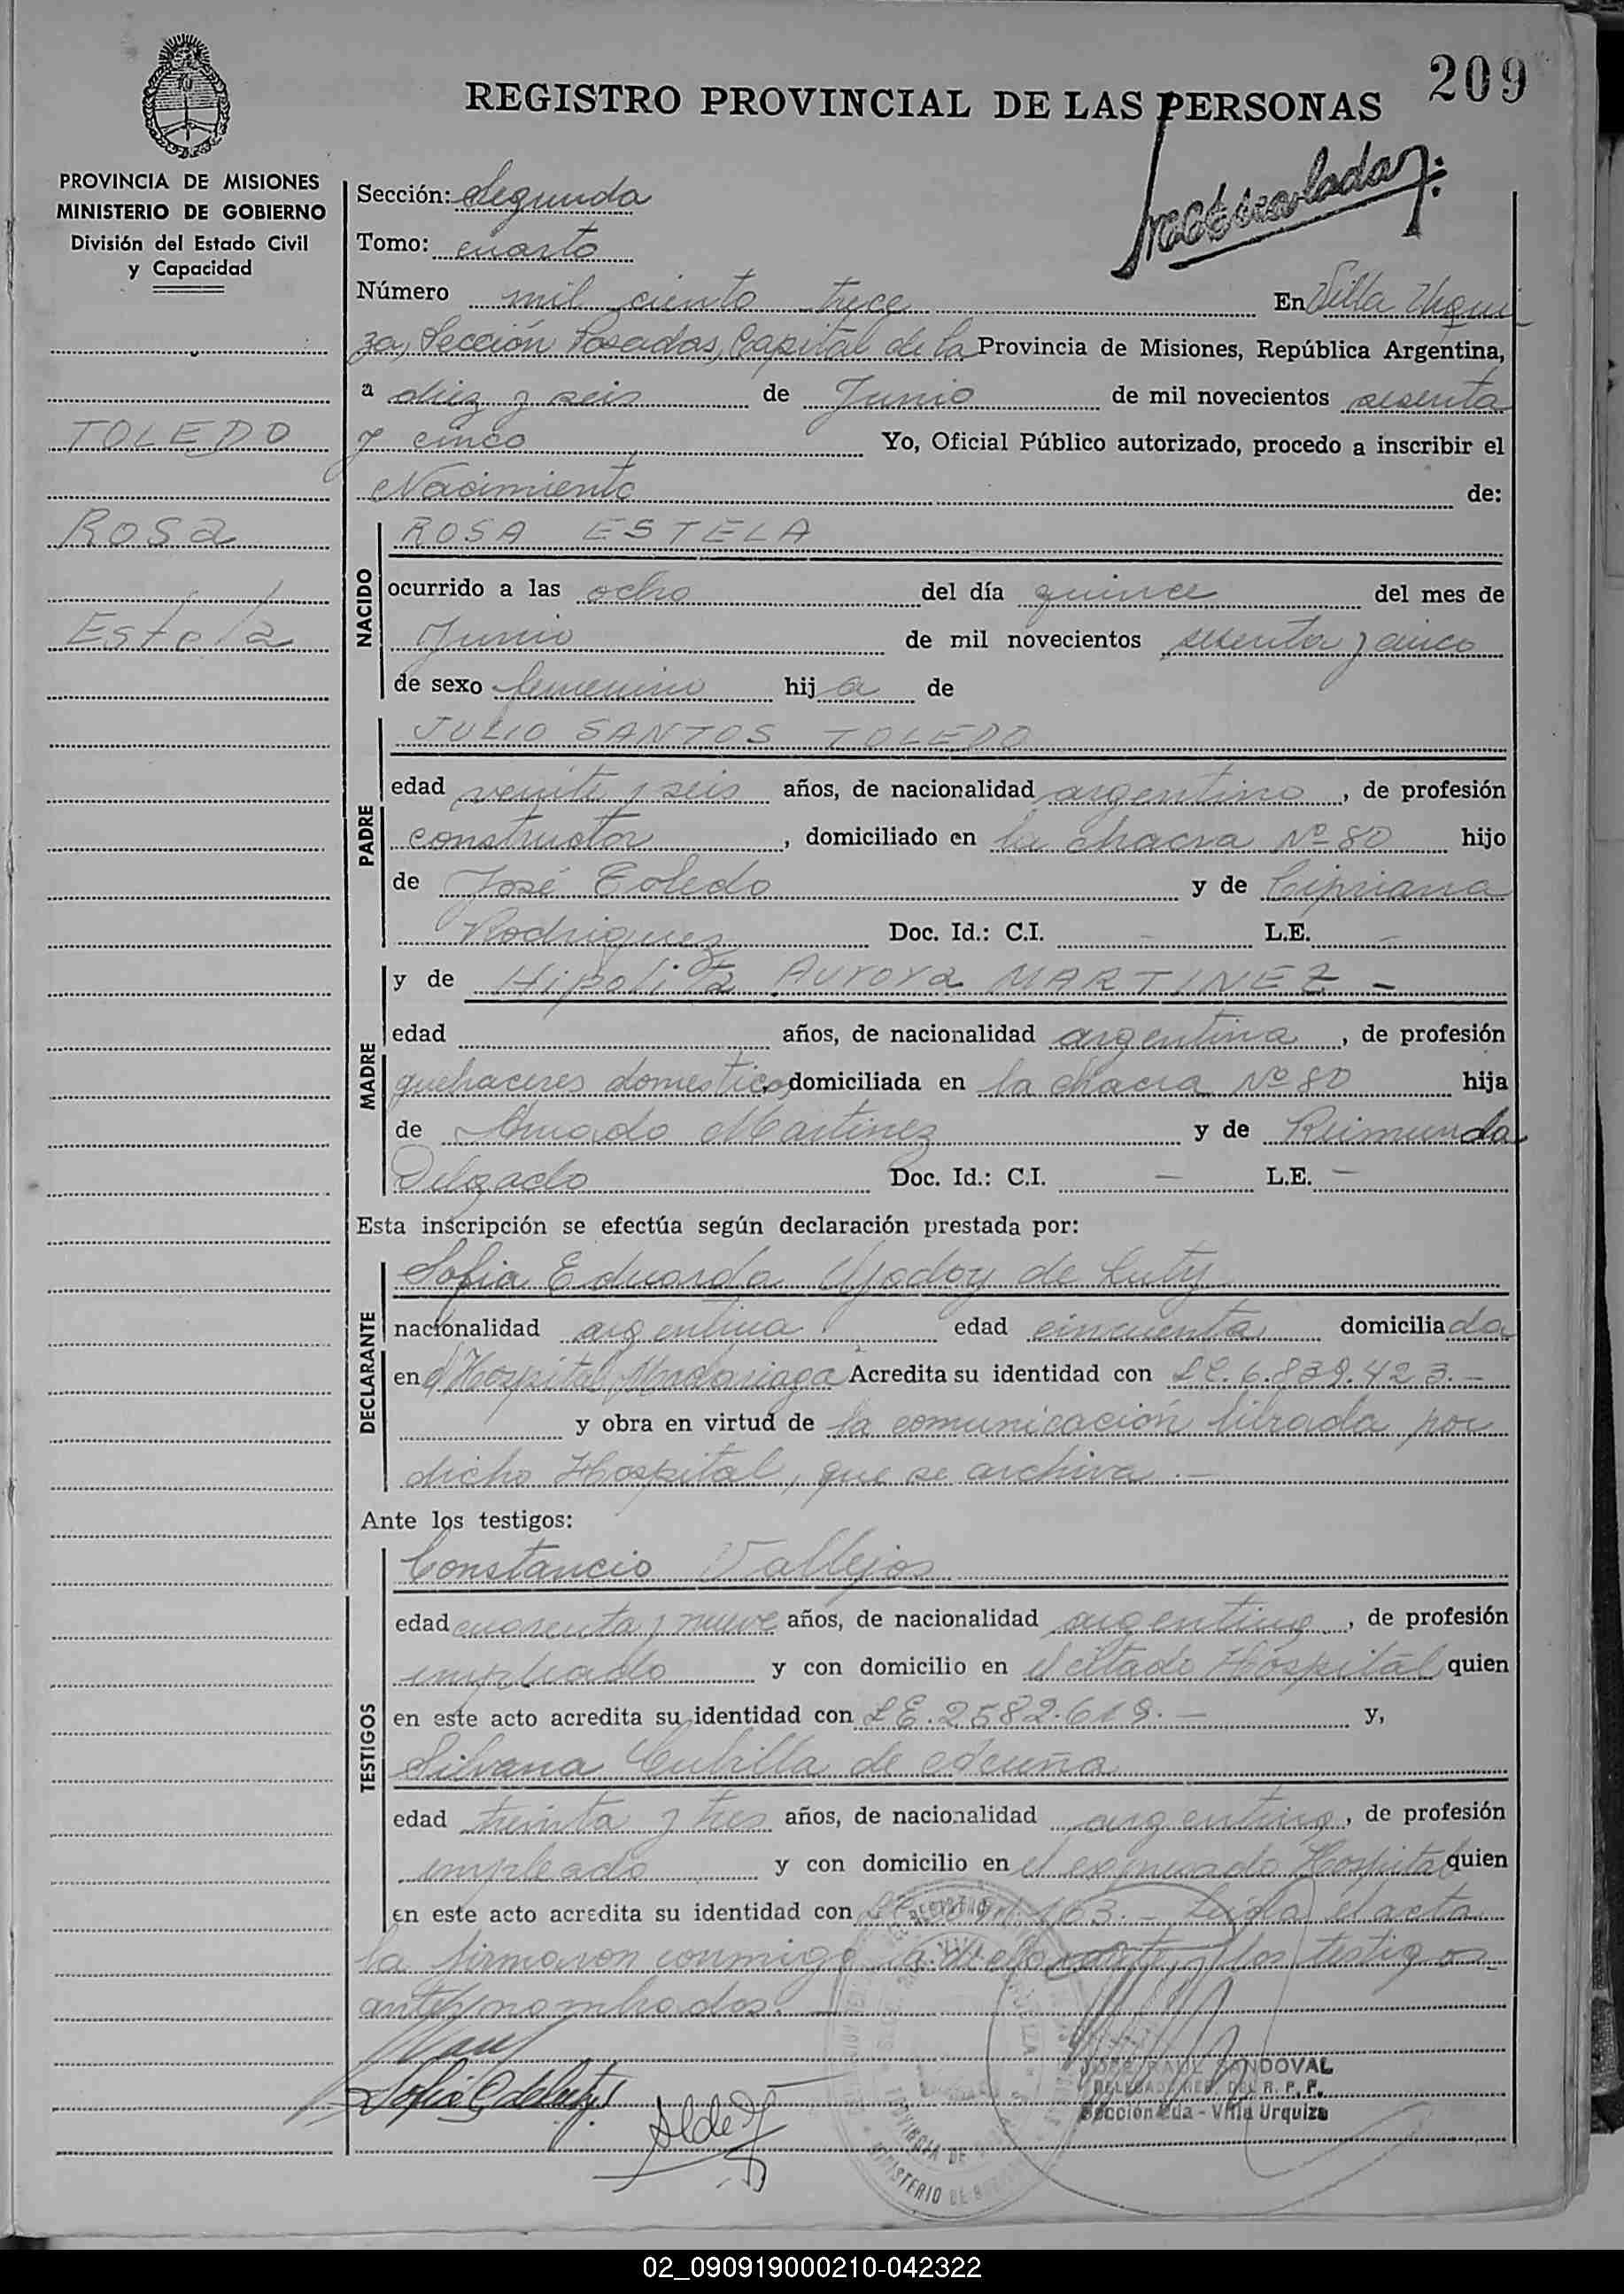 209
REGISTRO PROVINCIAL DE LAS PERSONAS
PROVINCIA DE MISIONES
MINISTERIO DE GOBIERNO
División del Estado Civil
y Capacidad
TOLEDO
Rosa
Estela
Sección: Segunda
Tomo: cuarto
Número mil ciento trece En Villa Urqui
za, Sección Posadas, Capital de la Provincia de Misiones, República Argentina,
a diez y seis de Junio de mil novecientos sesenta
y cinco Yo, Oficial Público autorizado, procedo a inscribir el
Nacimiento de:
NACIDO
ROSA ESTELA
ocurrido a las ocho del día quince del mes de
Junio de mil novecientos sesenta y cinco
de sexo femenino hija de
PADRE
JULIO SANTOS TOLEDO
edad veinte y seis años, de nacionalidad argentino, de profesión
constructor, domiciliado en la chacra Nº 80 hijo
de José Toledo y de Cipriana
Rodriguez Doc. Id.: C.I. - L.E. -
MADRE
y de Hipolita Aurora MARTINEZ -
edad años, de nacionalidad argentina, de profesión
quehaceres domesticos, domiciliada en la chacra Nº 80 hija
de Amado Martinez y de Reimunda
Delgado Doc. Id.: C.I. — L.E. —
Esta inscripción se efectúa según declaración prestada por:
DECLARANTE
Sofia Eduarda Godoy de
nacionalidad argentina edad cincuenta domiciliada
en el Hospital Madariaga Acredita su identidad con LC. 6.839.423.—
y obra en virtud de la comunicación librada por
dicho Hospital, que se archiva.—
Ante los testigos:
TESTIGOS
Constancio Vallejos
edad cuarenta y nueve años, de nacionalidad argentino, de profesión
empleado y con domicilio en el citado Hospital quien
en este acto acredita su identidad con LE. 2582.619.— y,
Silvana Cubilla de
edad treinta y tres años, de nacionalidad argentina, de profesión
empleada y con domicilio en el expresado Hospital quien
en este acto acredita su identidad con 163.— Leida el acta
la firmaron conmigo la declarante y los testigos
antes nombrados.—
JOSE RAUL SANDOVAL
Sección 2da - Villa Urquiza
02_090919000210-042322